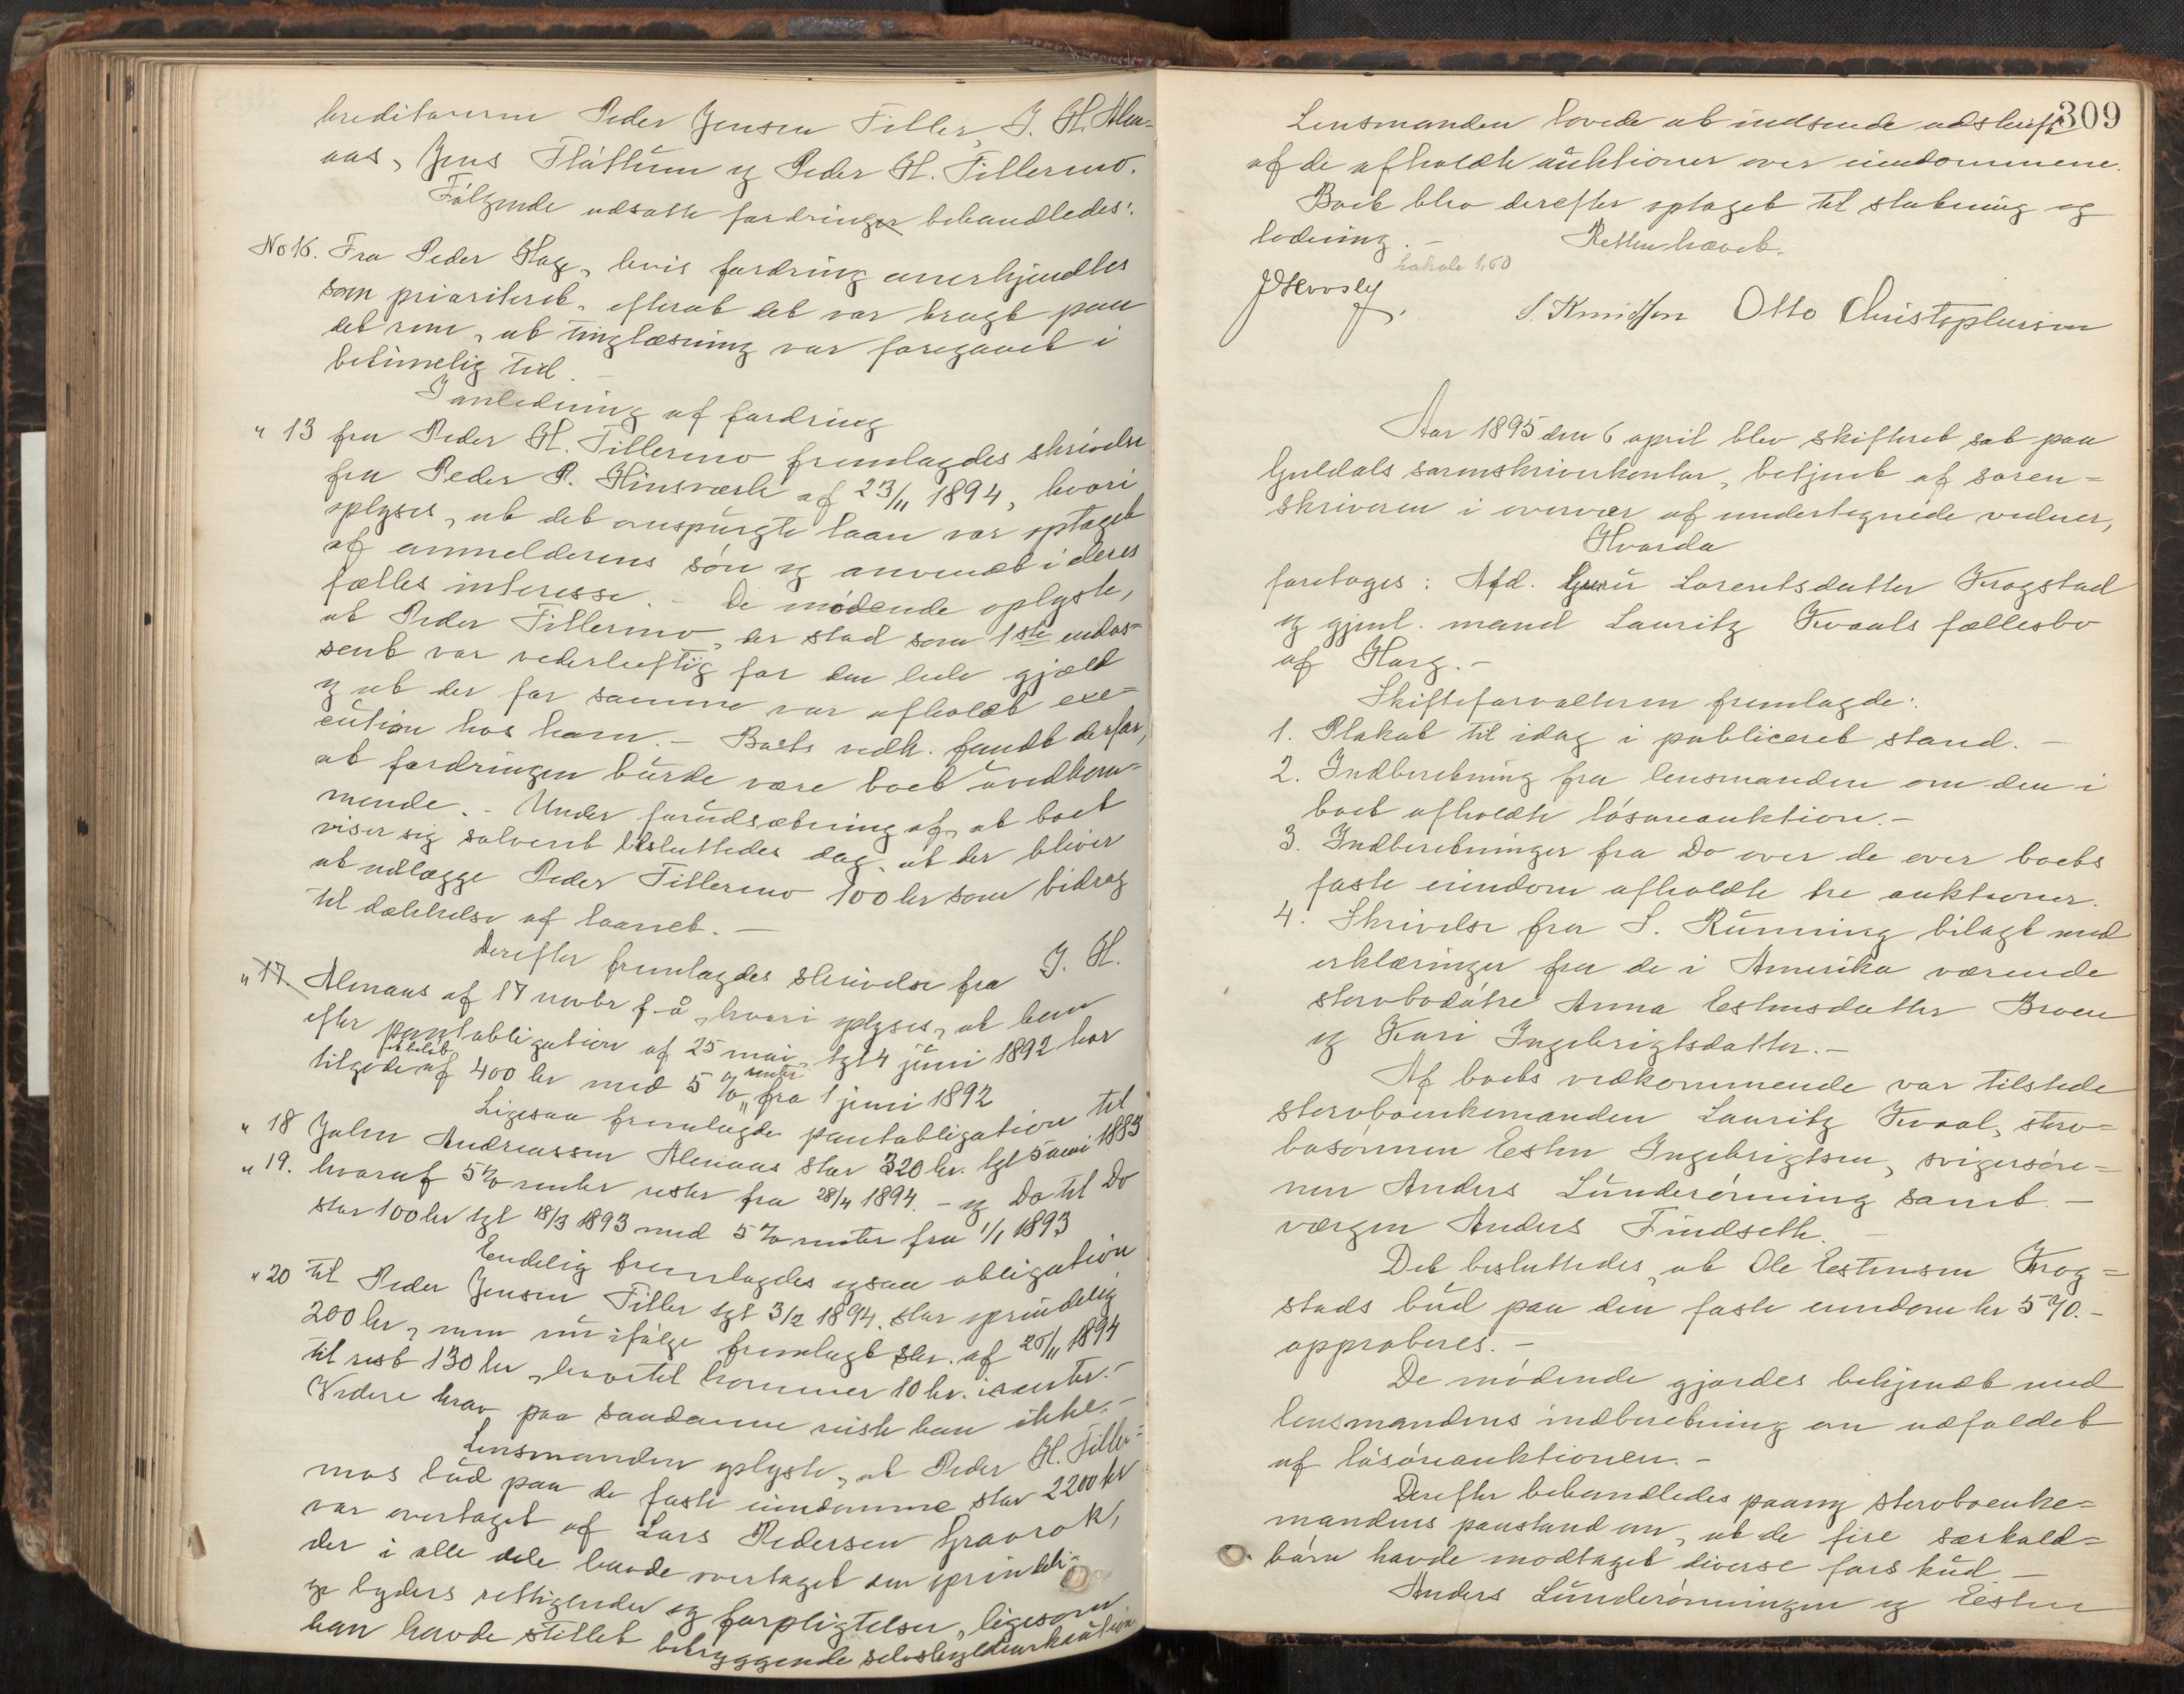 kreditorerne Peder Jensen Tiller, J. H. Alm-
aas, Jens Flåttum og Peder H. Tillermo.
Følgende udsatte fordringer behandledes:
No 16. Fra Peder Hage, hvis fordring anerkjendtes
som prioriteret, efterat det var bragt paa
det rene, at tinglæsning var foregaaet i
betimelig tid. -
I anledning af fordring
" 13 fra Peder H. Tillermo fremlagdes skrivelse
fra Peder P. Hinsværk af 23/11 1894, hvori
oplyses, at det omspurgte laan var optaget
af anmelderens søn og anvendt i deres
fælles interesse. - De mødende oplyste,
at Peder Tillermo, der stod som 1ste endos-
sent var vederheftig for den hele gjæld
og at der for samme var afholdt exe-
cution hos ham. - Boets vedk. fandt derfor,
at fordringen burde være boet uvedkom-
mende. - Under forudsætning af, at boet
viser sig solvent besluttedes dog, at der bliver
at udlægge Peder Tillermo 100 kr som bidrag
til dækkelse af laanet. -
Derefter fremlagdes skrivelse fra J. H.
" 17. Almaas af 17 novbr f. å, hvori oplyses, at han
efter pantobligation af 25 mai, tgl 4 juni 1892 har
tilgode et beløb af 400 kr med 5 % renter fra 1 juni 1892
Ligesaa fremlagdes pantobligation til
" 18 John Andreassen Almaas stor 320 kr. tgl 5 juni 1883
" 19. hvoraf 5 % renter rester fra 28/4 1894. - og Do til Do
stor 100 kr tgl 18/3 1893 med 5 % renter fra 1/1 1893
Endelig fremlagdes ogsaa obligation
" 20 til Peder Jensen Tiller tgl 3/2 1894. stor oprindelig
200 kr, men nu ifølge fremlagt skr. af 20/11 1894
til rest 130 kr, hvortil kommer 10 kr. i renter. -
Videre krav paa saadanne reiste han ikke. -
Lensmanden oplyste, at Peder H. Tiller-
mos bud paa de faste eiendomme stor 2200 kr
var overtaget af Lars Pedersen Gravrok,
der i alle dele havde overtaget den oprindeli-
ge byders rettigheder og forpligtelser, ligesom
han havde stillet betryggende selvskyldnerkaution
309
Lensmanden lovede at indsende udskrift
af de afholdte auktioner over eiendommene.
Boet blev derefter optaget til slutning og
lodning. - Retten hævet.
Lokale 1,60
S. Knudsen Otto Christophersen
Aar 1895 den 6 april blev skifteret sat paa
Guldals sorenskriverkontor, betjent af soren-
skriveren i overvær af undertegnede vidner,
Hvorda
foretoges: Afd. Guru Lorentsdatter Krogstad
og gjenl. mand Lauritz Kvaals fællesbo
af Horg. -
Skifteforvalteren fremlagde:
1. Plakat til idag i publiceret stand. -
2. Indberetning fra lensmanden om den i
boet afholdte løsøreauktion. -
3. Indberetninger fra Do over de over boets
faste eiendom afholdte tre auktioner.
4. Skrivelse fra S. Running bilagt med
erklæringer fra de i Amerika værende
stervbodøtre Anna Estensdatter Broen
og Kari Ingebrigtsdatter. -
Af boets vedkommende var tilstede
stervboenkemanden Lauritz Kvaal, sterv-
bosønnen Esten Ingebrigtsen, svigersøn-
nen Anders Lunderønning samt -
værgen Anders Findseth. -
Det besluttedes, at Ole Estensen Krog-
stads bud paa den faste eiendom kr 570. -
approberes. -
De mødende gjordes bekjendt med
lensmandens indberetning om udfaldet
af løsøreauktionen. -
Derefter behandledes paany stervboenke-
mandens paastand om, at de fire særkuld-
børn havde modtaget diverse forskud -
Anders Lunderønningen og Esten